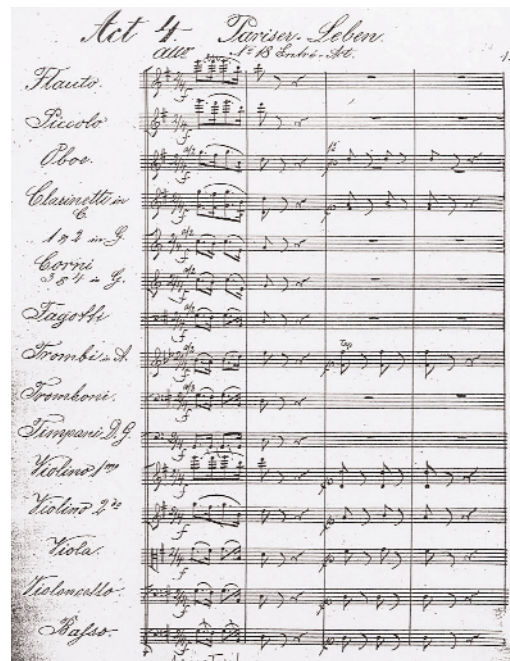 Act 4. Pariser-Leben.
aus
No 18 Entre-Act.
1.
Flauto.
Piccolo
Oboe.
Clarinetti in
C.
1 & 2 in G.
Corni
3 & 4 in G.
Fagotti
Trombi in A.
Tromboni.
Timpani D. G.
Violino 1mo
Violino 2do
Viola.
Violoncello.
Basso.